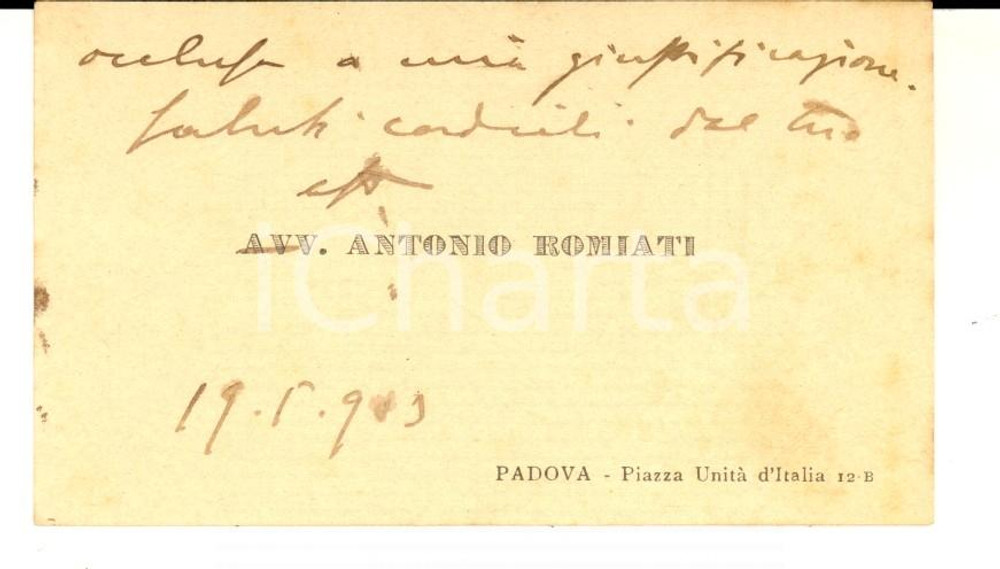 a mia giustificazione.
saluti cordiali dal tuo
aff
AVV. ANTONIO ROMIATI
iCharta
19.5.9
PADOVA - Piazza Unità d'Italia 12-B